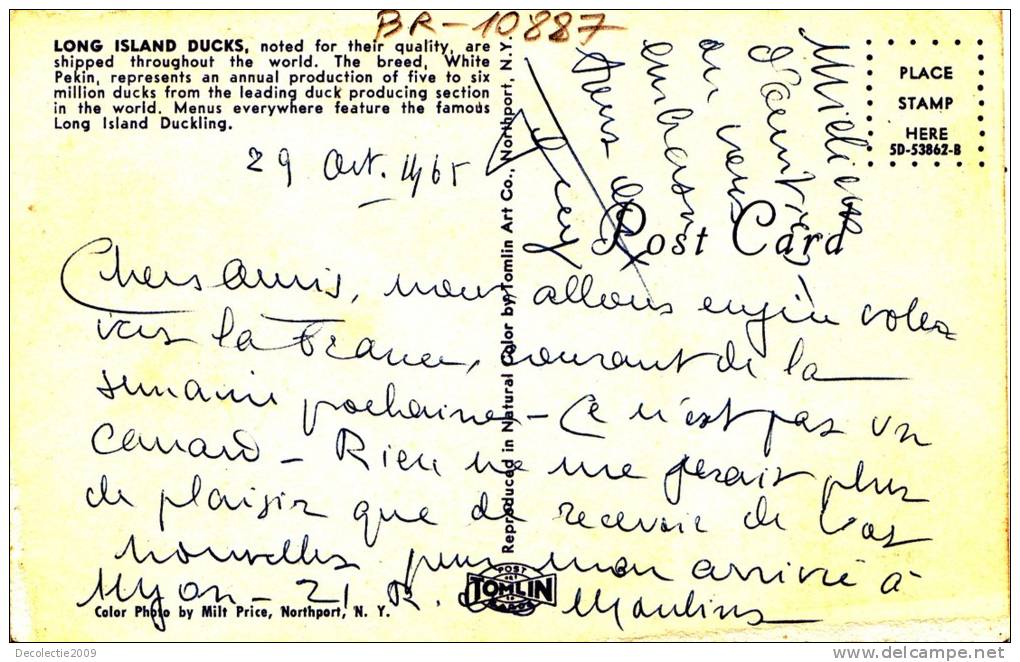 BR-10887
LONG ISLAND DUCKS, noted for their quality, are
shipped throughout the world. The breed, White
Pekin, represents an annual production of five to six
million ducks from the leading duck producing section
in the world. Menus everywhere feature the famous
Long Island Duckling.
PLACE
STAMP
HERE
5D-53862-B
Post Card
29 Oct. 1965
Chers amis, nous allons enfin voler
vers la France, courant de la
semaine prochaine - Ce n'est pas un
canard - Rien ne me ferait plus
de plaisir que de recevoir de vos
nouvelles pour mon arrivée à
Lyon - 21 R. des Moulins
d'amitiés
on vous
embrasse
tous
Reproduced in Natural Color by Tomlin Art Co., Northport, N. Y.
POST
TOMLIN
CARDS
Color Photo by Milt Price, Northport, N. Y.
Decolectie2009
delcampe.net